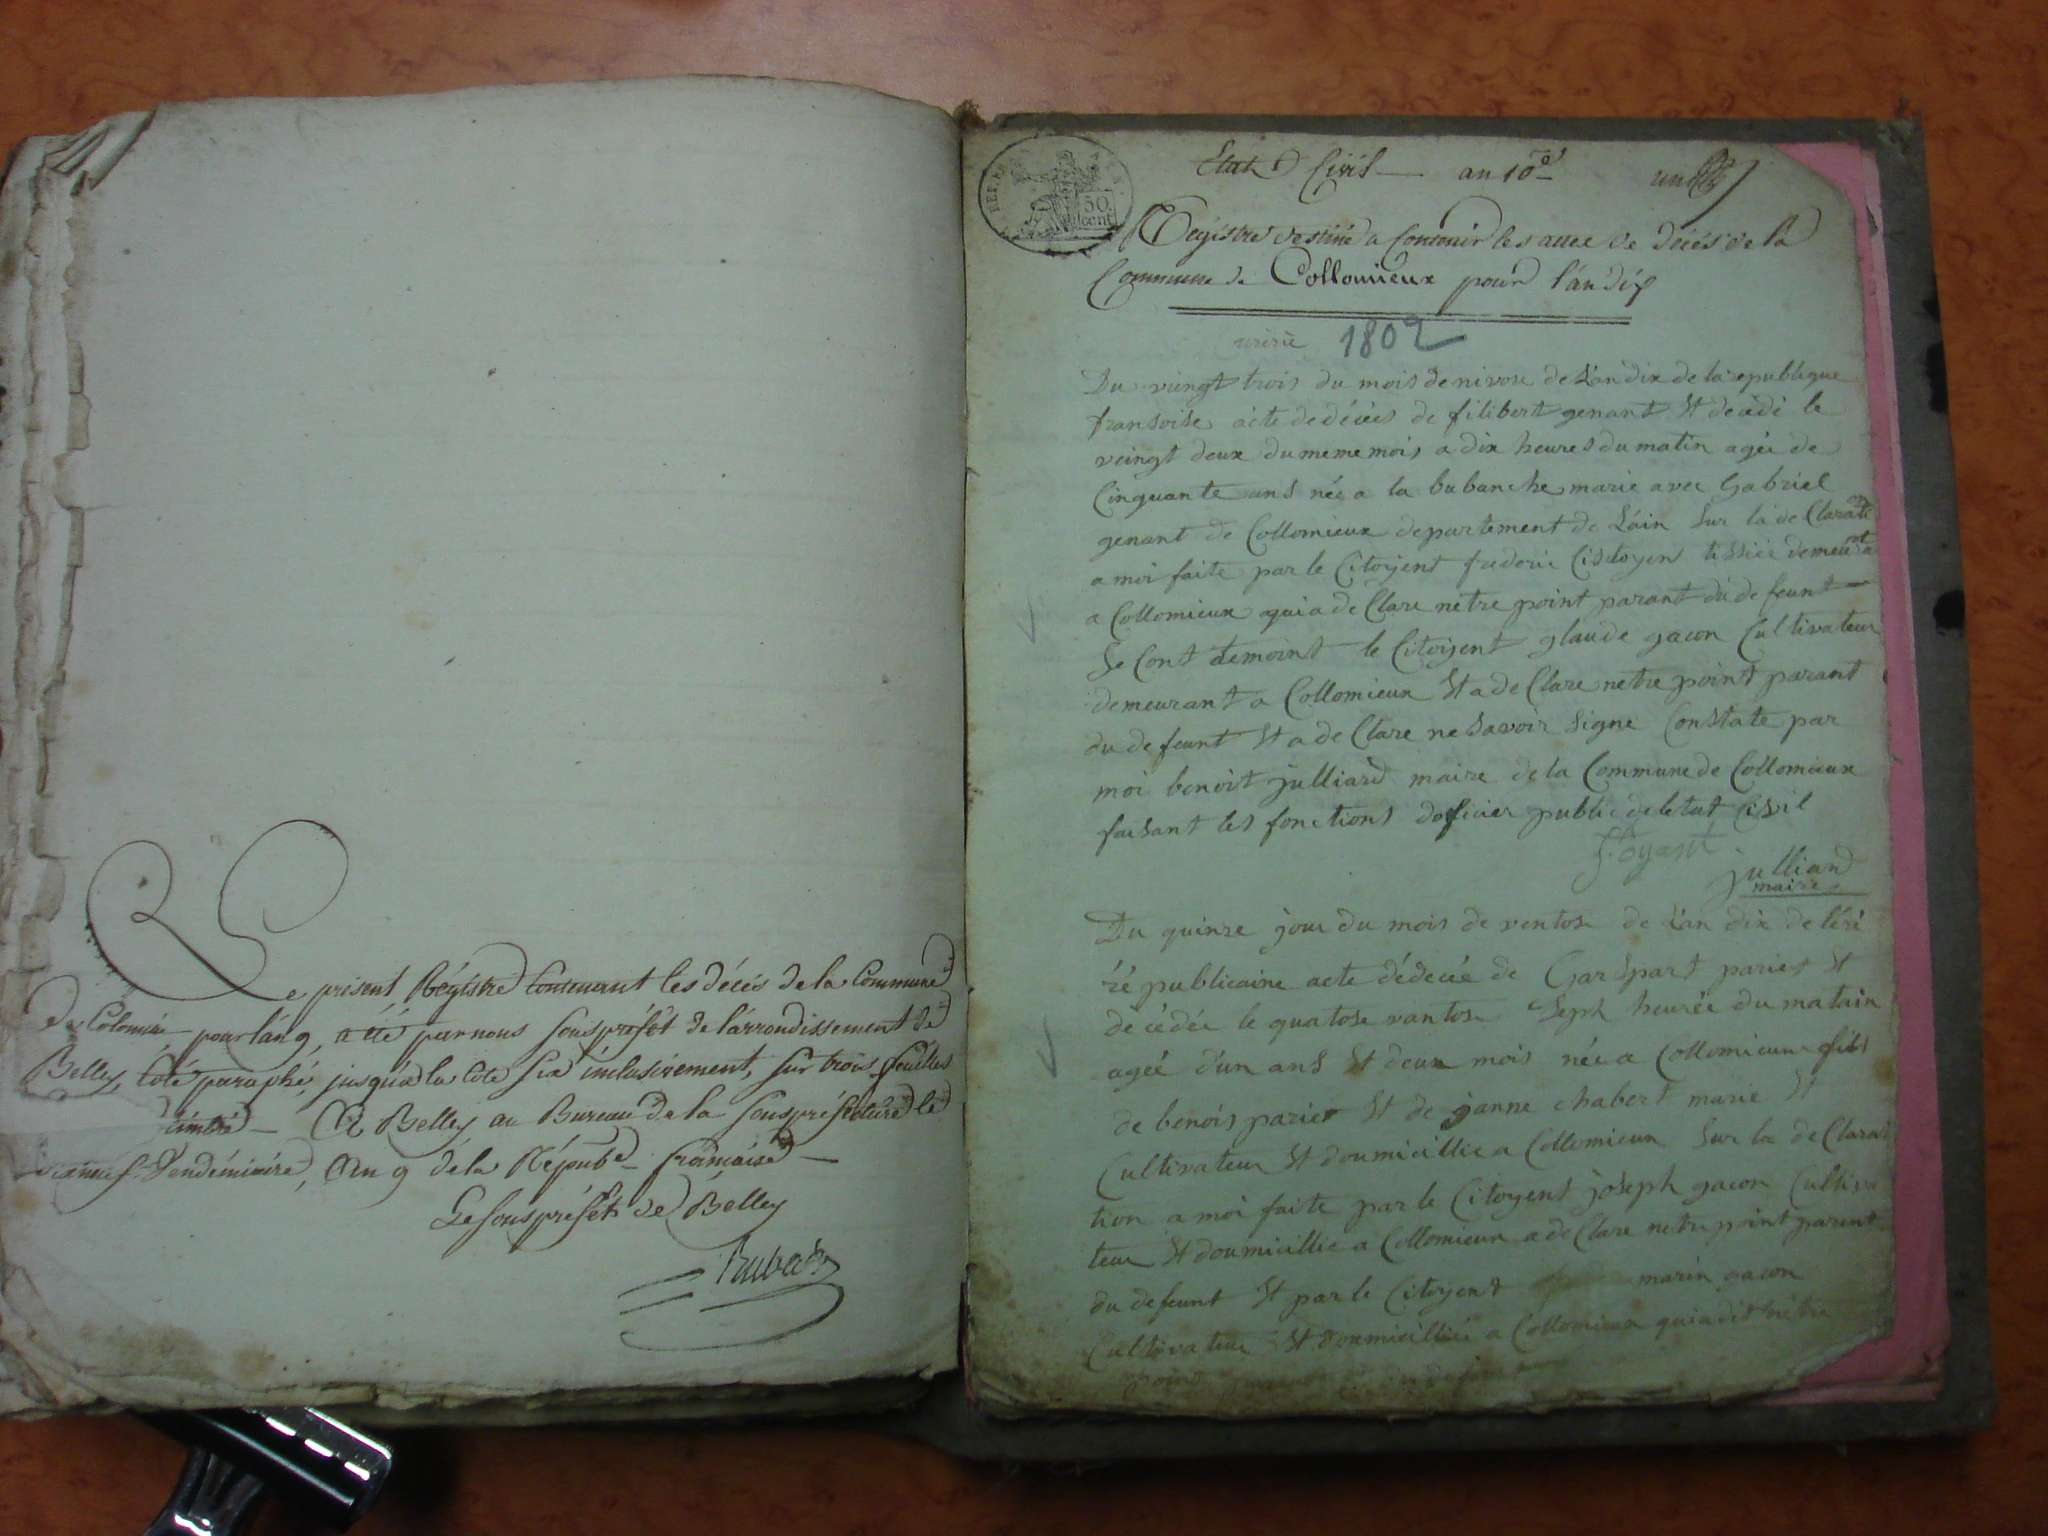 Le présent Régistre Contenant les décès de la Commune
De Colomieu pour l'an 9, a été par nous Souspréfêt de l'arrondissement de
Belley, Coté paraphé, jusqu'à la Cote Six inclusivement, sur trois feuilles
timbré — A Belley au Bureau de la Souspréfecture le
Vendémiaire, An 9 de la Répube française —
Le souspréfêt de Belley
Etat Civil — an 10e un
REP. FRA
50
cent
Régistre destiné a Contenir les actes de décès de la
Commune de Collomieux pour l'an dix
1802
Du vingt trois du mois de nivose de L'an dix de la republique
fransoise acte de décées de filibert genant St decédé le
veingt deux du meme mois a dix heures du matin agée de
Cinquante ans née a la bubanche marie avec Gabriel
genant de Collomieux departement de L'ain Sur la de Claration
a moi faite par le Citoyent frederic tissier demeurant
a Collomieux qui a de Clare netre point parant du defeunt
Se Cont temoint le Citoyent glaude gacon Cultivateur
demeurant a Collomieux St a de Clare netre point parant
du defeunt St a de Clare ne Savoir Signe Constate par
moi benoit julliard maire de la Commune de Collomieux
faisant les fonctions doficier public de letat Civil
julliard
maire
Du quinze jour du mois de ventose de L'an dix de léré
ré publicaine acte dédecée de Garspart pariet St
décédée le quatose vantose Seph heurée du matain
agée d'un ans St deux mois née a Collomieux fils
de benois pariet St de janne chabert marie St
Cultivateur St doumicillie a Collomieux Sur la de Clara
tion a moi faite par le Citoyent joseph gacon Cultiva
teur St doumicillie a Collomieux a de Clare netre point parent
du defeunt St par le Citoyent marin gacon
Cultivateur St doumicillié a Collomieux qui a dit nètre
point